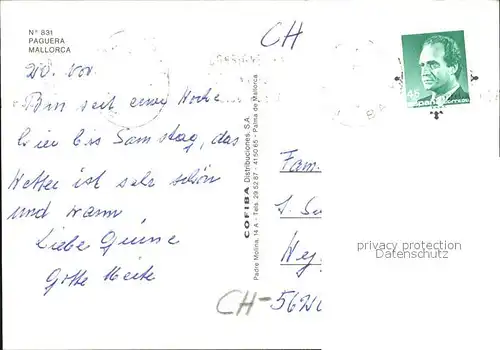 Nº 831
PAGUERA
MALLORCA
CH
20. Nov.
Bin seit einer Woche
hier bis Samstag, das
Wetter ist sehr schön
und warm
Liebe Grüsse
COFIBA Distribuciones, S.A.
Padre Molina, 14 A - Tels. 29 52 87 - 41 50 65 - Palma de Mallorca
45
ESPAÑA CORREOS
Fam.
CH-562
privacy protection
Datenschutz